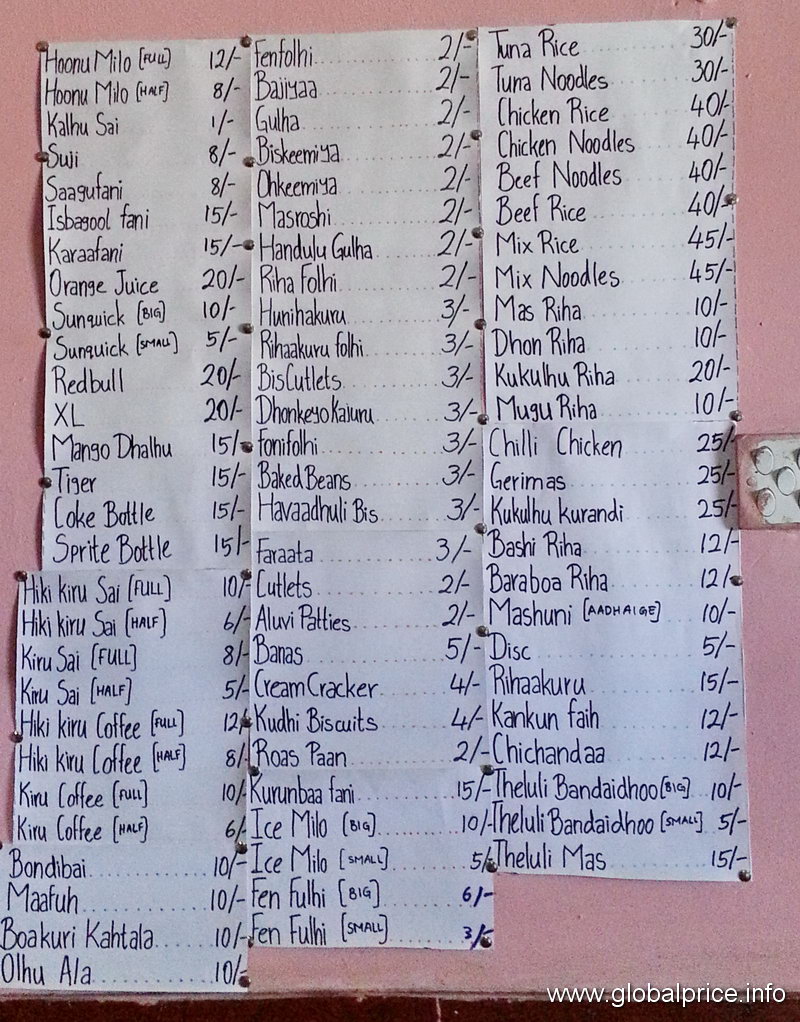 Hoonu Milo [FULL] 12/-
Hoonu Milo [HALF] 8/-
Kalhu Sai 1/-
Suji 8/-
Saagufani 8/-
Isbagool fani 15/-
Karaafani 15/-
Orange Juice 20/-
Sunquick [BIG] 10/-
Sunquick [SMALL] 5/-
Redbull 20/-
XL 20/-
Mango Dhalhu 15/-
Tiger 15/-
Coke Bottle 15/-
Sprite Bottle 15/-
Hiki kiru Sai [FULL] 10/-
Hiki kiru Sai [HALF] 6/-
Kiru Sai [FULL] 8/-
Kiru Sai [HALF] 5/-
Hiki kiru Coffee [FULL] 12/-
Hiki kiru Coffee [HALF] 8/-
Kiru Coffee [FULL] 10/-
Kiru Coffee [HALF] 6/-
Bondibai 10/-
Maafuh 10/-
Boakuri Kahtala 10/-
Olhu Ala 10/-
Fenfolhi 2/-
Bajiyaa 2/-
Gulha 2/-
Biskeemiya 2/-
Ohkeemiya 2/-
Masroshi 2/-
Handulu Gulha 2/-
Riha Folhi 2/-
Hunihakuru 3/-
Rihaakuru folhi 3/-
BisCutlets 3/-
Dhonkeyo Kajuru 3/-
Fonifolhi 3/-
Baked Beans 3/-
Havaadhuli Bis 3/-
Faraata 3/-
Cutlets 2/-
Aluvi Patties 2/-
Banas 5/-
Cream Cracker 4/-
Kudhi Biscuits 4/-
Roas Paan 2/-
Kurunbaa fani 15/-
Ice Milo [BIG] 10/-
Ice Milo [SMALL] 5/-
Fen Fulhi [BIG] 6/-
Fen Fulhi [SMALL] 3/-
Tuna Rice 30/-
Tuna Noodles 30/-
Chicken Rice 40/-
Chicken Noodles 40/-
Beef Noodles 40/-
Beef Rice 40/-
Mix Rice 45/-
Mix Noodles 45/-
Mas Riha 10/-
Dhon Riha 10/-
Kukulhu Riha 20/-
Mugu Riha 10/-
Chilli Chicken 25/-
Gerimas 25/-
Kukulhu kurandi 25/-
Bashi Riha 12/-
Baraboa Riha 12/-
Mashuni [AADHAIGE] 10/-
Disc 5/-
Rihaakuru 15/-
Kankun faih 12/-
Chichandaa 12/-
Theluli Bandaidhoo [BIG] 10/-
Theluli Bandaidhoo [SMALL] 5/-
Theluli Mas 15/-
www.globalprice.info